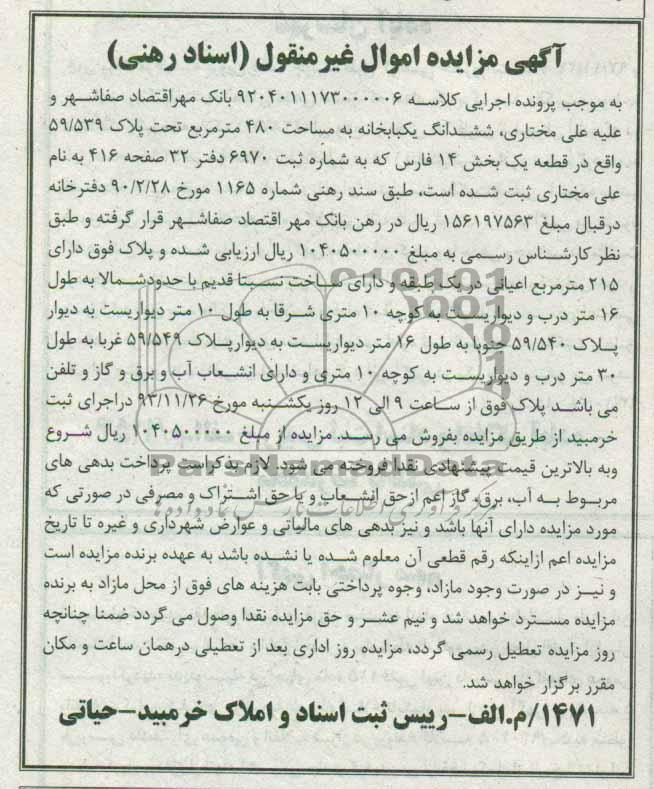 آگهی مزایده اموال غیرمنقول (اسناد رهنی)
به موجب پرونده اجرایی کلاسه ۹۲۰۴۰۱۱۱۷۳۰۰۰۰۰۶ بانک مهراقتصاد صفاشهر و
علیه علی مختاری، ششدانگ یکبابخانه به مساحت ۴۸۰ مترمربع تحت پلاک ۵۹/۵۳۹
واقع در قطعه یک بخش ۱۴ فارس که به شماره ثبت ۶۹۷۰ دفتر ۳۲ صفحه ۴۱۶ به نام
علی مختاری ثبت شده است، طبق سند رهنی شماره ۱۱۶۵ مورخ ۹۰/۲/۲۸ دفترخانه
درقبال مبلغ ۱۵۶۱۹۷۵۶۳ ریال در رهن بانک مهر اقتصاد صفاشهر قرار گرفته و طبق
نظر کارشناس رسمی به مبلغ ۱۰۴۰۵۰۰۰۰۰ ریال ارزیابی شده و پلاک فوق دارای
۲۱۵ مترمربع اعیانی در یک طبقه و دارای ساخت نسبتا قدیم با حدودشمالا به طول
۱۶ متر درب و دیواریست به کوچه ۱۰ متری شرقا به طول ۱۰ متر دیواریست به دیوار
پلاک ۵۹/۵۴۰ جنوبا به طول ۱۶ متر دیواریست به دیوارپلاک ۵۹/۵۴۹ غربا به طول
۳۰ متر درب و دیواریست به کوچه ۱۰ متری و دارای انشعاب آب و برق و گاز و تلفن
می باشد پلاک فوق از ساعت ۹ الی ۱۲ روز یکشنبه مورخ ۹۳/۱۱/۲۶ دراجرای ثبت
خرمبید از طریق مزایده بفروش می رسد. مزایده از مبلغ ۱۰۴۰۵۰۰۰۰۰ ریال شروع
وبه بالاترین قیمت پیشنهادی نقدا فروخته می شود. لازم بذکراست پرداخت بدهی های
مربوط به آب، برق، گاز اعم ازحق انشعاب و یا حق اشتراک و مصرفی در صورتی که
مورد مزایده دارای آنها باشد و نیز بدهی های مالیاتی و عوارض شهرداری و غیره تا تاریخ
مزایده اعم ازاینکه رقم قطعی آن معلوم شده یا نشده باشد به عهده برنده مزایده است
و نیز در صورت وجود مازاد، وجوه پرداختی بابت هزینه های فوق از محل مازاد به برنده
مزایده مسترد خواهد شد و نیم عشر و حق مزایده نقدا وصول می گردد ضمنا چنانچه
روز مزایده تعطیل رسمی گردد، مزایده روز اداری بعد از تعطیلی درهمان ساعت و مکان
مقرر برگزار خواهد شد.
۱۴۷۱/م.الف-رییس ثبت اسناد و املاک خرمبید-حیاتی